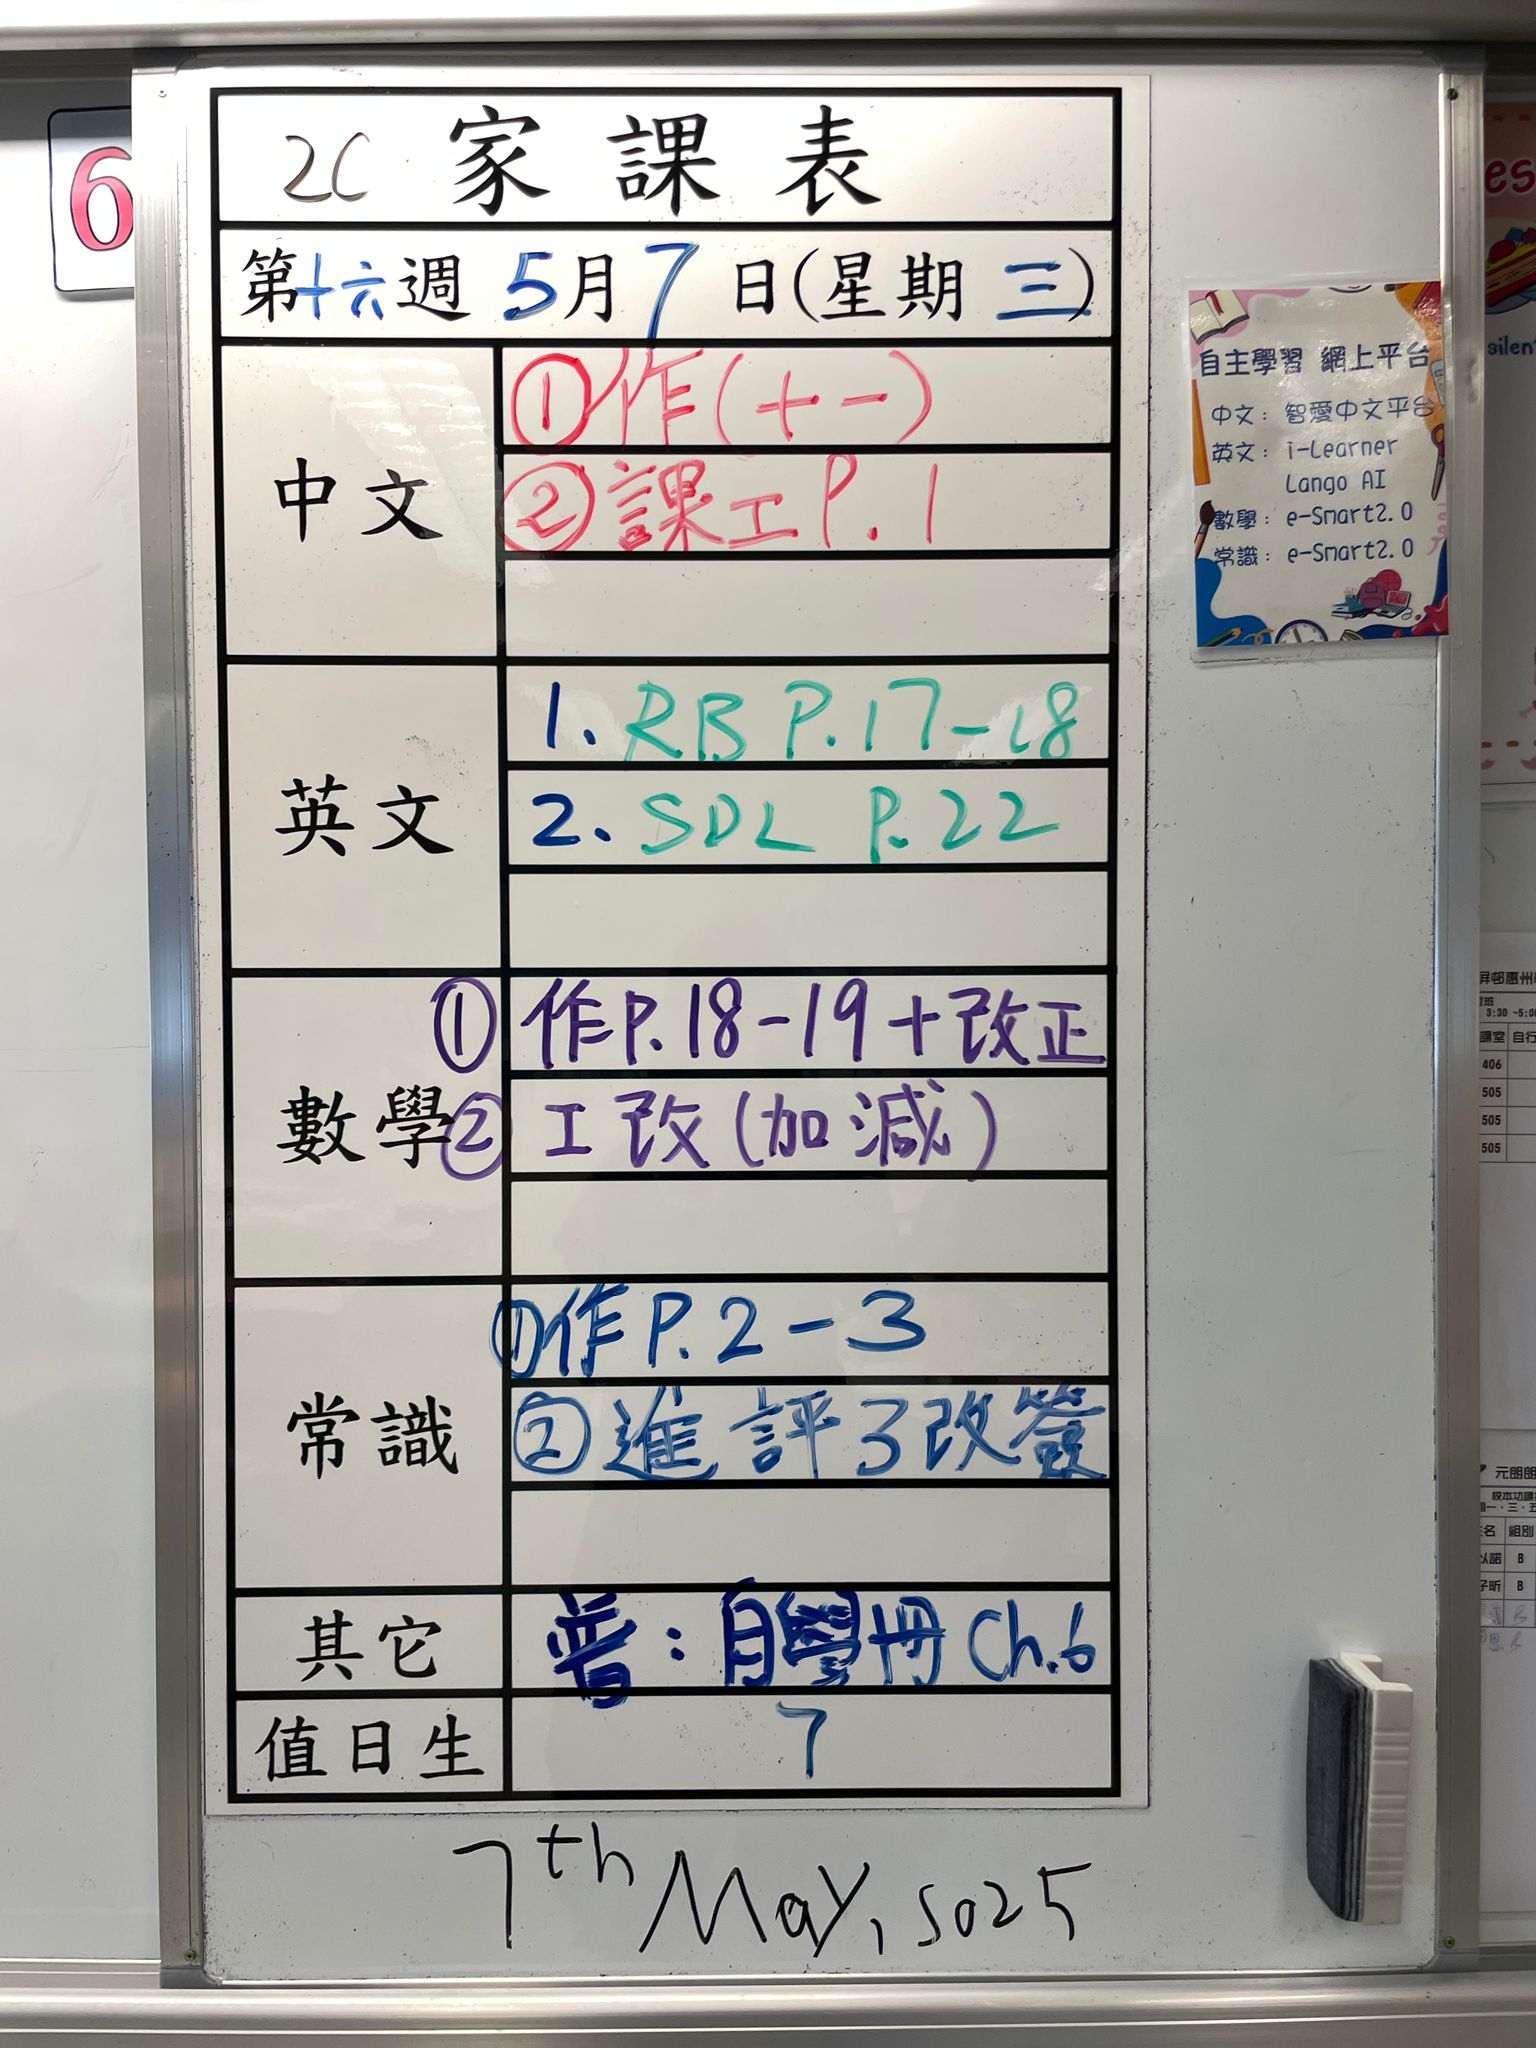 6
2C 家課表
第十六週 5月7日(星期三)
中文
①作(+-)
②課工P.1
英文
1. RB P.17-18
2. SDL P.22
數學
① 作P.18-19+改正
② 工改(加減)
常識
①作P.2-3
②進評3改簽
其它
普:自學冊Ch.6
值日生
7
7th May, 2025
自主學習 網上平台
中文: 智愛中文平台
英文: i-Learner
Lango AI
數學: e-Smart2.0
常識: e-Smart2.0
es
silent
屏邨惠州
3:30 ~5:00
課室 自行
406
505
505
505
元朗朗
校本功課
週一、三、五
姓名 組別
以諾 B
子昕 B